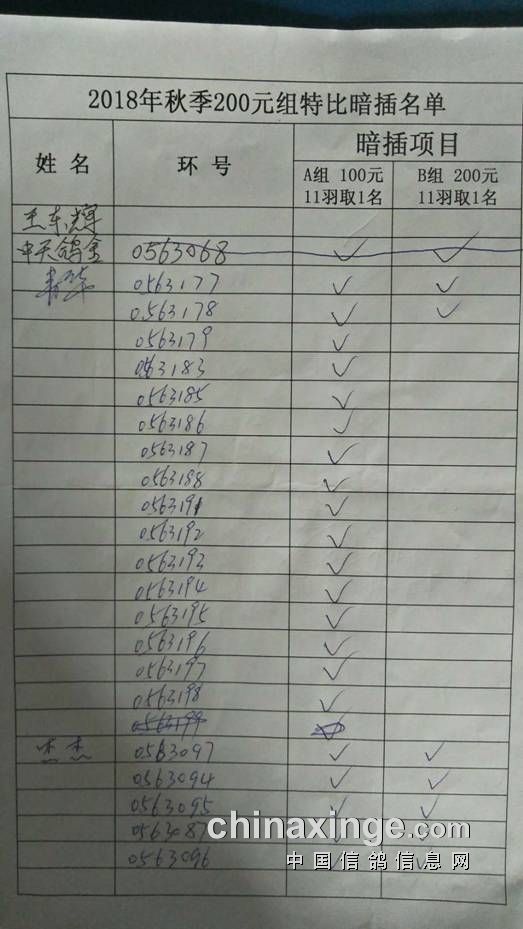 2018年秋季200元组特比暗插名单
姓 名 环 号 暗插项目
A组 100元 B组 200元
11羽取1名 11羽取1名
王东辉
中天鸽舍 0563068 ✓ ✓
0563177 ✓ ✓
0563178 ✓ ✓
0563179 ✓
0563183 ✓
0563185 ✓
0563186 ✓
0563187 ✓
0563188 ✓
0563191 ✓
0563192 ✓
0563193 ✓
0563194 ✓
0563195 ✓
0563196 ✓
0563197 ✓
0563198 ✓
0563199 ✓
杰杰 0563097 ✓ ✓
0563094 ✓ ✓
0563095 ✓ ✓
0563087 ✓ ✓
0563096 ✓ ✓
chinaxinge.com
中国信鸽信息网